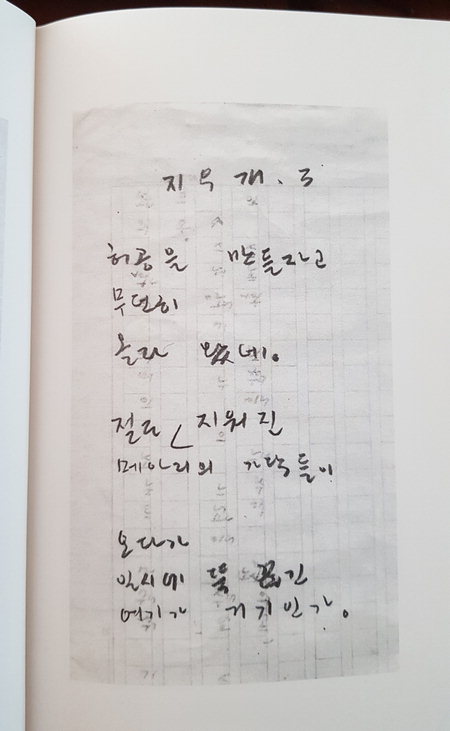 지우개. 3
허공을 만들라고
무던히
올라 왔네.
지워진
메아리의 가닥들이
오다가
일시에 뚝 끊긴
여기가 거기인가.